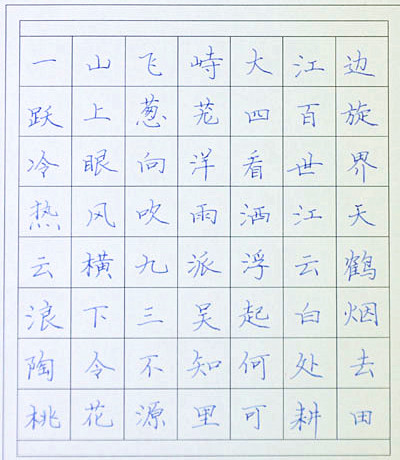 一山飞峙大江边
跃上葱茏四百旋
冷眼向洋看世界
热风吹雨洒江天
云横九派浮云鹤
浪下三吴起白烟
陶令不知何处去
桃花源里可耕田